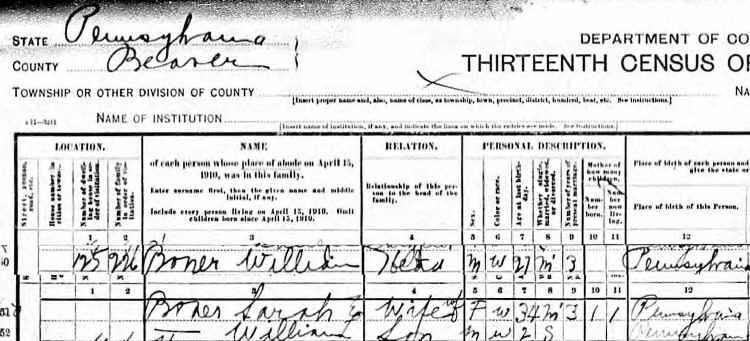 STATE Pennsylvania
DEPARTMENT OF CO
COUNTY Beaver
THIRTEENTH CENSUS OF
TOWNSHIP OR OTHER DIVISION OF COUNTY
[Insert proper name and, also, name of class, as township, town, precinct, district, hundred, beat, etc. See instructions.]
NAME OF INSTITUTION
[Insert name of institution, if any, and indicate the lines on which the entries are made. See instructions.]
LOCATION. NAME RELATION. PERSONAL DESCRIPTION.
Street, avenue, road, etc.
House number in cities or towns.
Number of dwelling house in order of visitation.
Number of family in order of visitation.
of each person whose place of abode on April 15, 1910, was in this family.
Enter surname first, then the given name and middle initial, if any.
Include every person living on April 15, 1910. Omit children born since April 15, 1910.
Relationship of this person to the head of the family.
Sex.
Color or race.
Age at last birthday.
Whether single, married, widowed, or divorced.
Number of years of present marriage.
Mother of how many children.
Number born.
Number now living.
Place of birth of each person and
give the state or
Place of birth of this Person.
1 2 3 4 5 6 7 8 9 10 11 12
50 125 226 Boner William Head M W 27 M 3 Pennsylvania
1 2 3 4 5 6 7 8 9 10 11 12
51 Boner Sarah Wife F W 34 M 3 1 1 Pennsylvania
52 William Son M W 2 S Pennsylvania